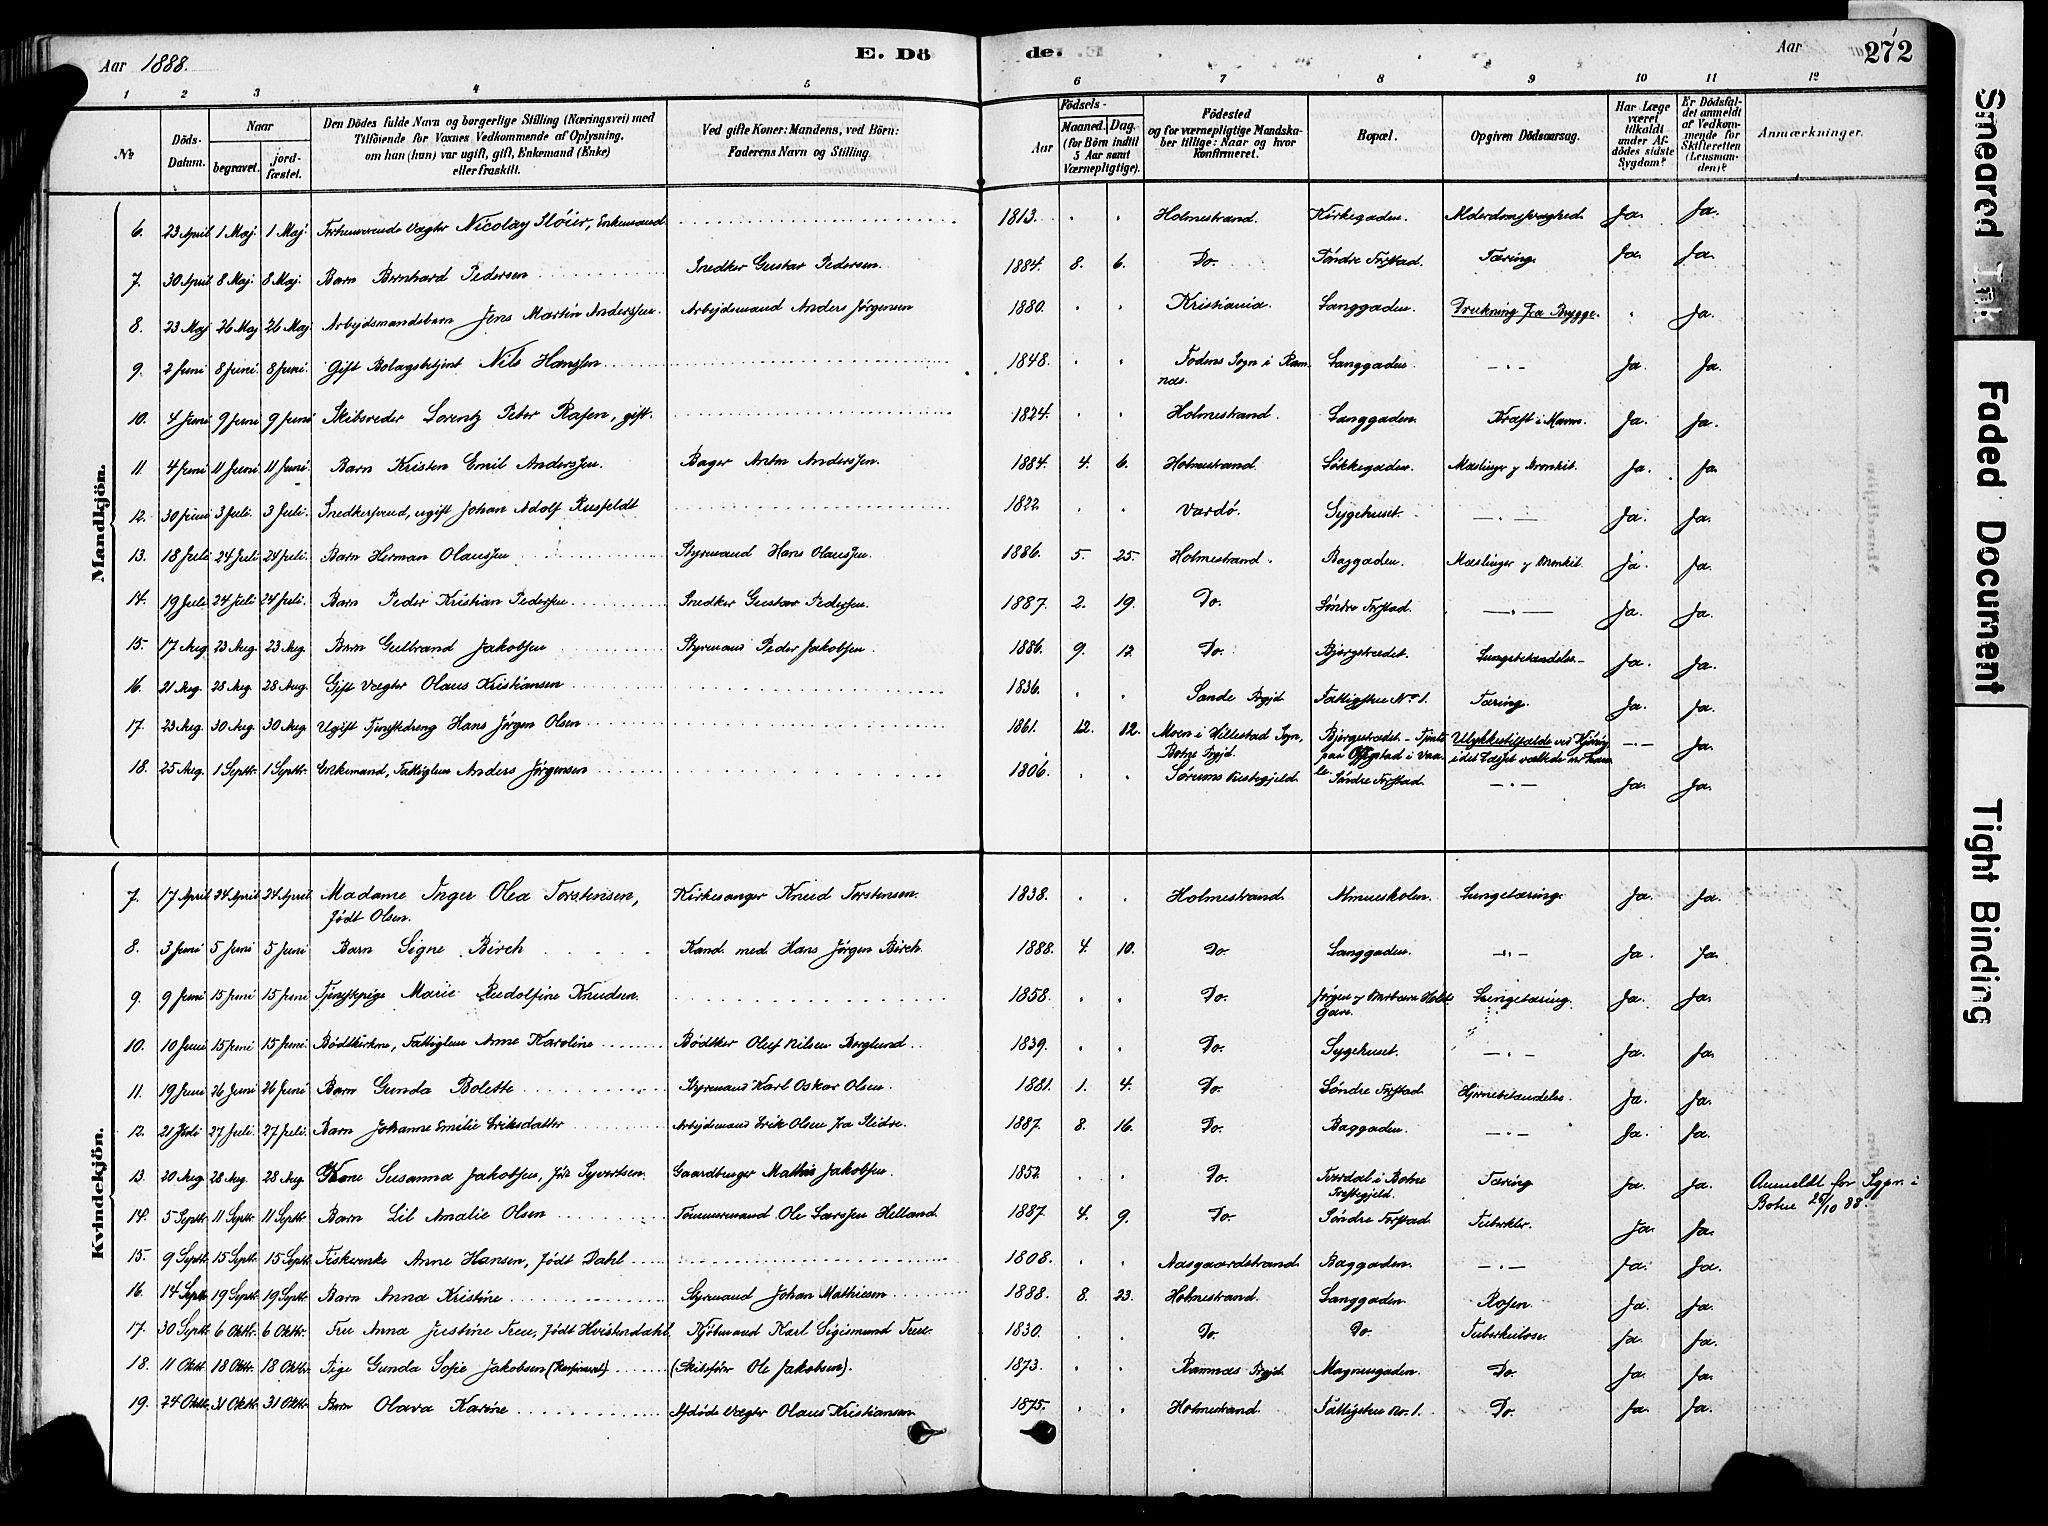 Aar 1888.
E. Dö
de.
Aar
272
1 2 3 4 5 6 7 8 9 10 11 12
No
Döds-Datum.
Naar
begravet.
jord-fæstet.
Den Dödes fulde Navn og borgerlige Stilling (Næringsvei) med
Tilföiende for Voxnes Vedkommende af Oplysning,
om han (hun) var ugift, gift, Enkemand (Enke)
eller fraskilt.
Ved gifte Koner: Mandens, ved Börn:
Faderens Navn og Stilling.
Födsels-
Aar
Maaned. Dag.
(for Börn indtil
5 Aar samt
Værnepligtige).
Födested
og for værnepligtige Mandska-
ber tillige: Naar og hvor
konfirmeret.
Bopæl.
Opgiven Dödsaarsag.
Har Læge
været
tilkaldt
under Af-
dödes sidste
Sygdom?
Er Dödsfal-
det anmeldt
af Vedkom-
mende for
Skifteretten
(Lensman-
den)?
Anmærkninger.
Mandkjön.
6. 23 April 1 Maj 1 Maj Forhenværende Vægter Nicolay Fløier, Enkemand 1813. Holmestrand. Kirkegaden. Alderdomssvaghed. Ja. Ja.
7. 30 April 8 Maj. 8 Maj. Barn Bernhard Pedersen Snedker Gustav Pedersen. 1884. 8. 6. Do. Søndre Forstad. Tæring. Ja. Ja.
8. 23 Maj 26 Maj 26 Maj Arbejdsmandsbarn Jens Martin Anderssen. Arbejdsmand Anders Jørgensen 1880. Kristiania. Langgaden. Drukning fra Brygge. Ja.
9. 2 Juni 8 Juni. 8 Juni. Gift Bolagsbetjent Nils Hanssen 1848. Fodens Sogn i Ram
næs. Langgaden. —"— Ja. Ja.
10. 4 Juni 9 Juni 9 Juni Skibsreder Lorentz Peter Rafen, gift. 1824. Holmestrand. Langgaden. Kræft i Maven. Ja. Ja.
11. 4 Juni 11 Juni 11 Juni. Barn Kristen Emil Anderssen. Bager Anton Anderssen. 1884. 4. 6. Holmestrand. Løkkegaden. Mæslinger og Bronkit. Ja. Ja.
12. 30 Juni 3 Juli. 3 Juli. Snedkersvend, ugift Johan Adolf Rusfeldt 1822 Vardø. Sygehuset. —"— Ja. Ja.
13. 18 Juli 24 Juli 24 Juli. Barn Herman Olaussen Styrmand Hans Olaussen. 1886. 5. 25. Holmestrand. Baggaden. Mæslinger og Bronkit. Ja. Ja.
14. 19 Juli 24 Juli 24 Juli. Barn Peder Kristian Pedersen Snedker Gustav Pedersen. 1887. 2. 19. Do. Søndre Forstad. —"— Ja. Ja.
15. 17 Aug 23 Aug. 23 Aug. Barn Gulbrand Jakobsen Styrmand Peder Jakobsen. 1886. 9. 12. Do. Bjergstrædet. Lungebetændelse. Ja. Ja.
16. 21 Aug. 28 Aug. 28 Aug. Gift Vægter Olaus Kristiansen 1836. Sande Prgjd. Fattighus No 1. Tæring. Ja. Ja.
17. 23 Aug. 30 Aug. 30 Aug. Ugift Tjenestdreng Hans Jørgen Olsen 1861. 12. 12. Moen i Hillestad Sogn,
Botne Prgjd. Bjergstrædet. Ulykkestilfælde ved Kjøring
idet Læsset væltede over ham —"— Ja.
18. 25 Aug. 1 Septbr. 1 Septbr. Enkemand, Fattiglem Anders Jørgensen 1806. Sørums Prestegjeld. Søndre Forstad. —"— Ja. Ja.
Kvindekjön.
7. 17 April 24 April 24 April Madame Inger Olea Torstensen,
født Olsen. Kirkesanger Knud Torstensen. 1838. Holmestrand. Almueskolen. Lungetæring. Ja. Ja.
8. 3 Juni 5 Juni 5 Juni Barn Signe Birch Kand. med. Hans Jørgen Birch 1888. 4. 10. Do. Langgaden. —"— Ja. Ja.
9. 9 Juni 15 Juni 15 Juni Tjenestpige Marie Rudolfine Knudsen. 1858. Do. Jørgen og Barbara Holst
Gave. Lungetæring. Ja. Ja.
10. 10 Juni 15 Juni 15 Juni. Bødkerkone, Fattiglem Anne Karoline Bødtker Oluf Nilsen Berglund 1839. Do. Sygehuset. —"— Ja. Ja.
11. 19 Juni 26 Juni 26 Juni. Barn Gunda Bolette Styrmand Karl Oskar Olsen. 1881. 1. 4. Do. Søndre Forstad. Hjernebetændelse. Ja. Ja.
12. 21 Juli 27 Juli. 27 Juli. Barn Johanne Emilie Eriksdatter Arbejdsmand Erik Olsen fra Slidre. 1887. 8. 16. Do. Baggaden. —"— Ja. Ja.
13. 20 Aug 28 Aug. 28 Aug. Kone Susanna Jakobsen, før Syvertsen. Gaardbruger Mathis Jakobsen. 1852 Do. i Botne
Prestegjeld. Tæring Ja. Ja. Anmeldt for Sogn. i
Botne 26/10 88.
14. 5 Septbr. 11 Septbr. 11 Septbr. Barn Lil Amalie Olsen Tømmermand Ole Larssen Helland 1887. 4. 9. Do. Søndre Forstad. Tuberkler. Ja. Ja.
15. 9 Septbr. 15 Septbr. 15 Septbr. Fiskerenke Anne Hansen, født Dahl 1808. Aasgaardstrand. Baggaden. —"— Ja. Ja.
16. 14 Septbr. 19 Septbr. 19 Septbr. Barn Anna Kristine Styrmand Johan Mathiesen 1888. 8. 23. Holmestrand. Langgaden. Rosen. Ja. Ja.
17. 30 Septbr. 6 Oktbr. 6 Oktbr. Fru Anna Justine Tree, født Hvistendahl. Kjøbmand Karl Sigismund Tree. 1830. Do. Do. Tuberkulose. Ja. Ja.
18. 11 Oktbr. 18 Oktbr. 18 Oktbr. Pige Gunda Sofie Jakobsen (Konfirmeret) (Skibsfør Ole Jakobsen). 1873. Ramnæs Prgjd. Magnusgaden. Do. Ja. Ja.
19. 24 Oktbr. 31 Oktbr. 31 Oktbr. Barn Olava Karine Afdøde Vægter Olaus Kristiansen 1875. Holmestrand. Fattighus No. 1. Do. Ja. Ja.
Smeared Ink
Faded Document
Tight Binding